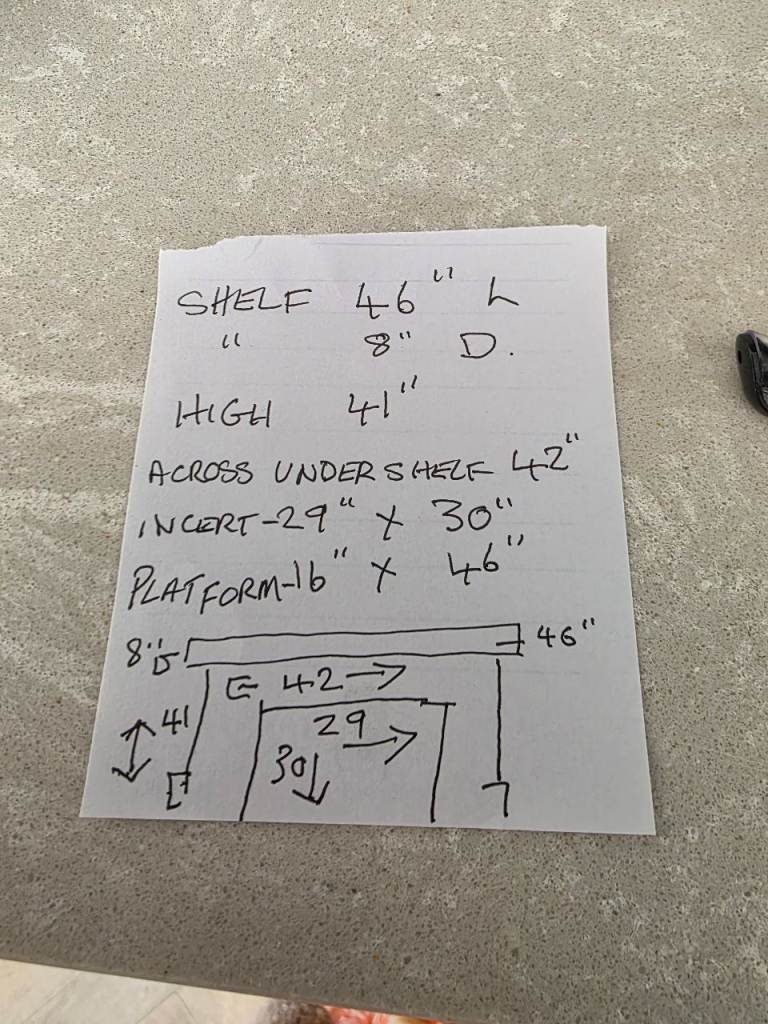 SHELF 46" L
" 8" D.
HIGH 41"
ACROSS UNDER SHELF 42"
INCERT-29" X 30"
PLATFORM-16" X 46"
8" D 46"
42
41 29
30